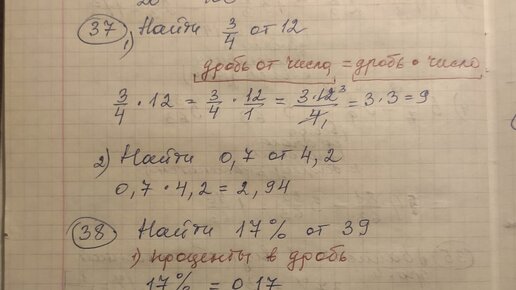 37 1) Найти 3/4 от 12
дробь от числа = дробь • число
3/4 · 12 = 3/4 · 12/1 = 3·12³/4₁ = 3·3 = 9
2) Найти 0,7 от 4,2
0,7 · 4,2 = 2,94
38 Найти 17% от 39
1) проценты в дробь
17% = 0,17